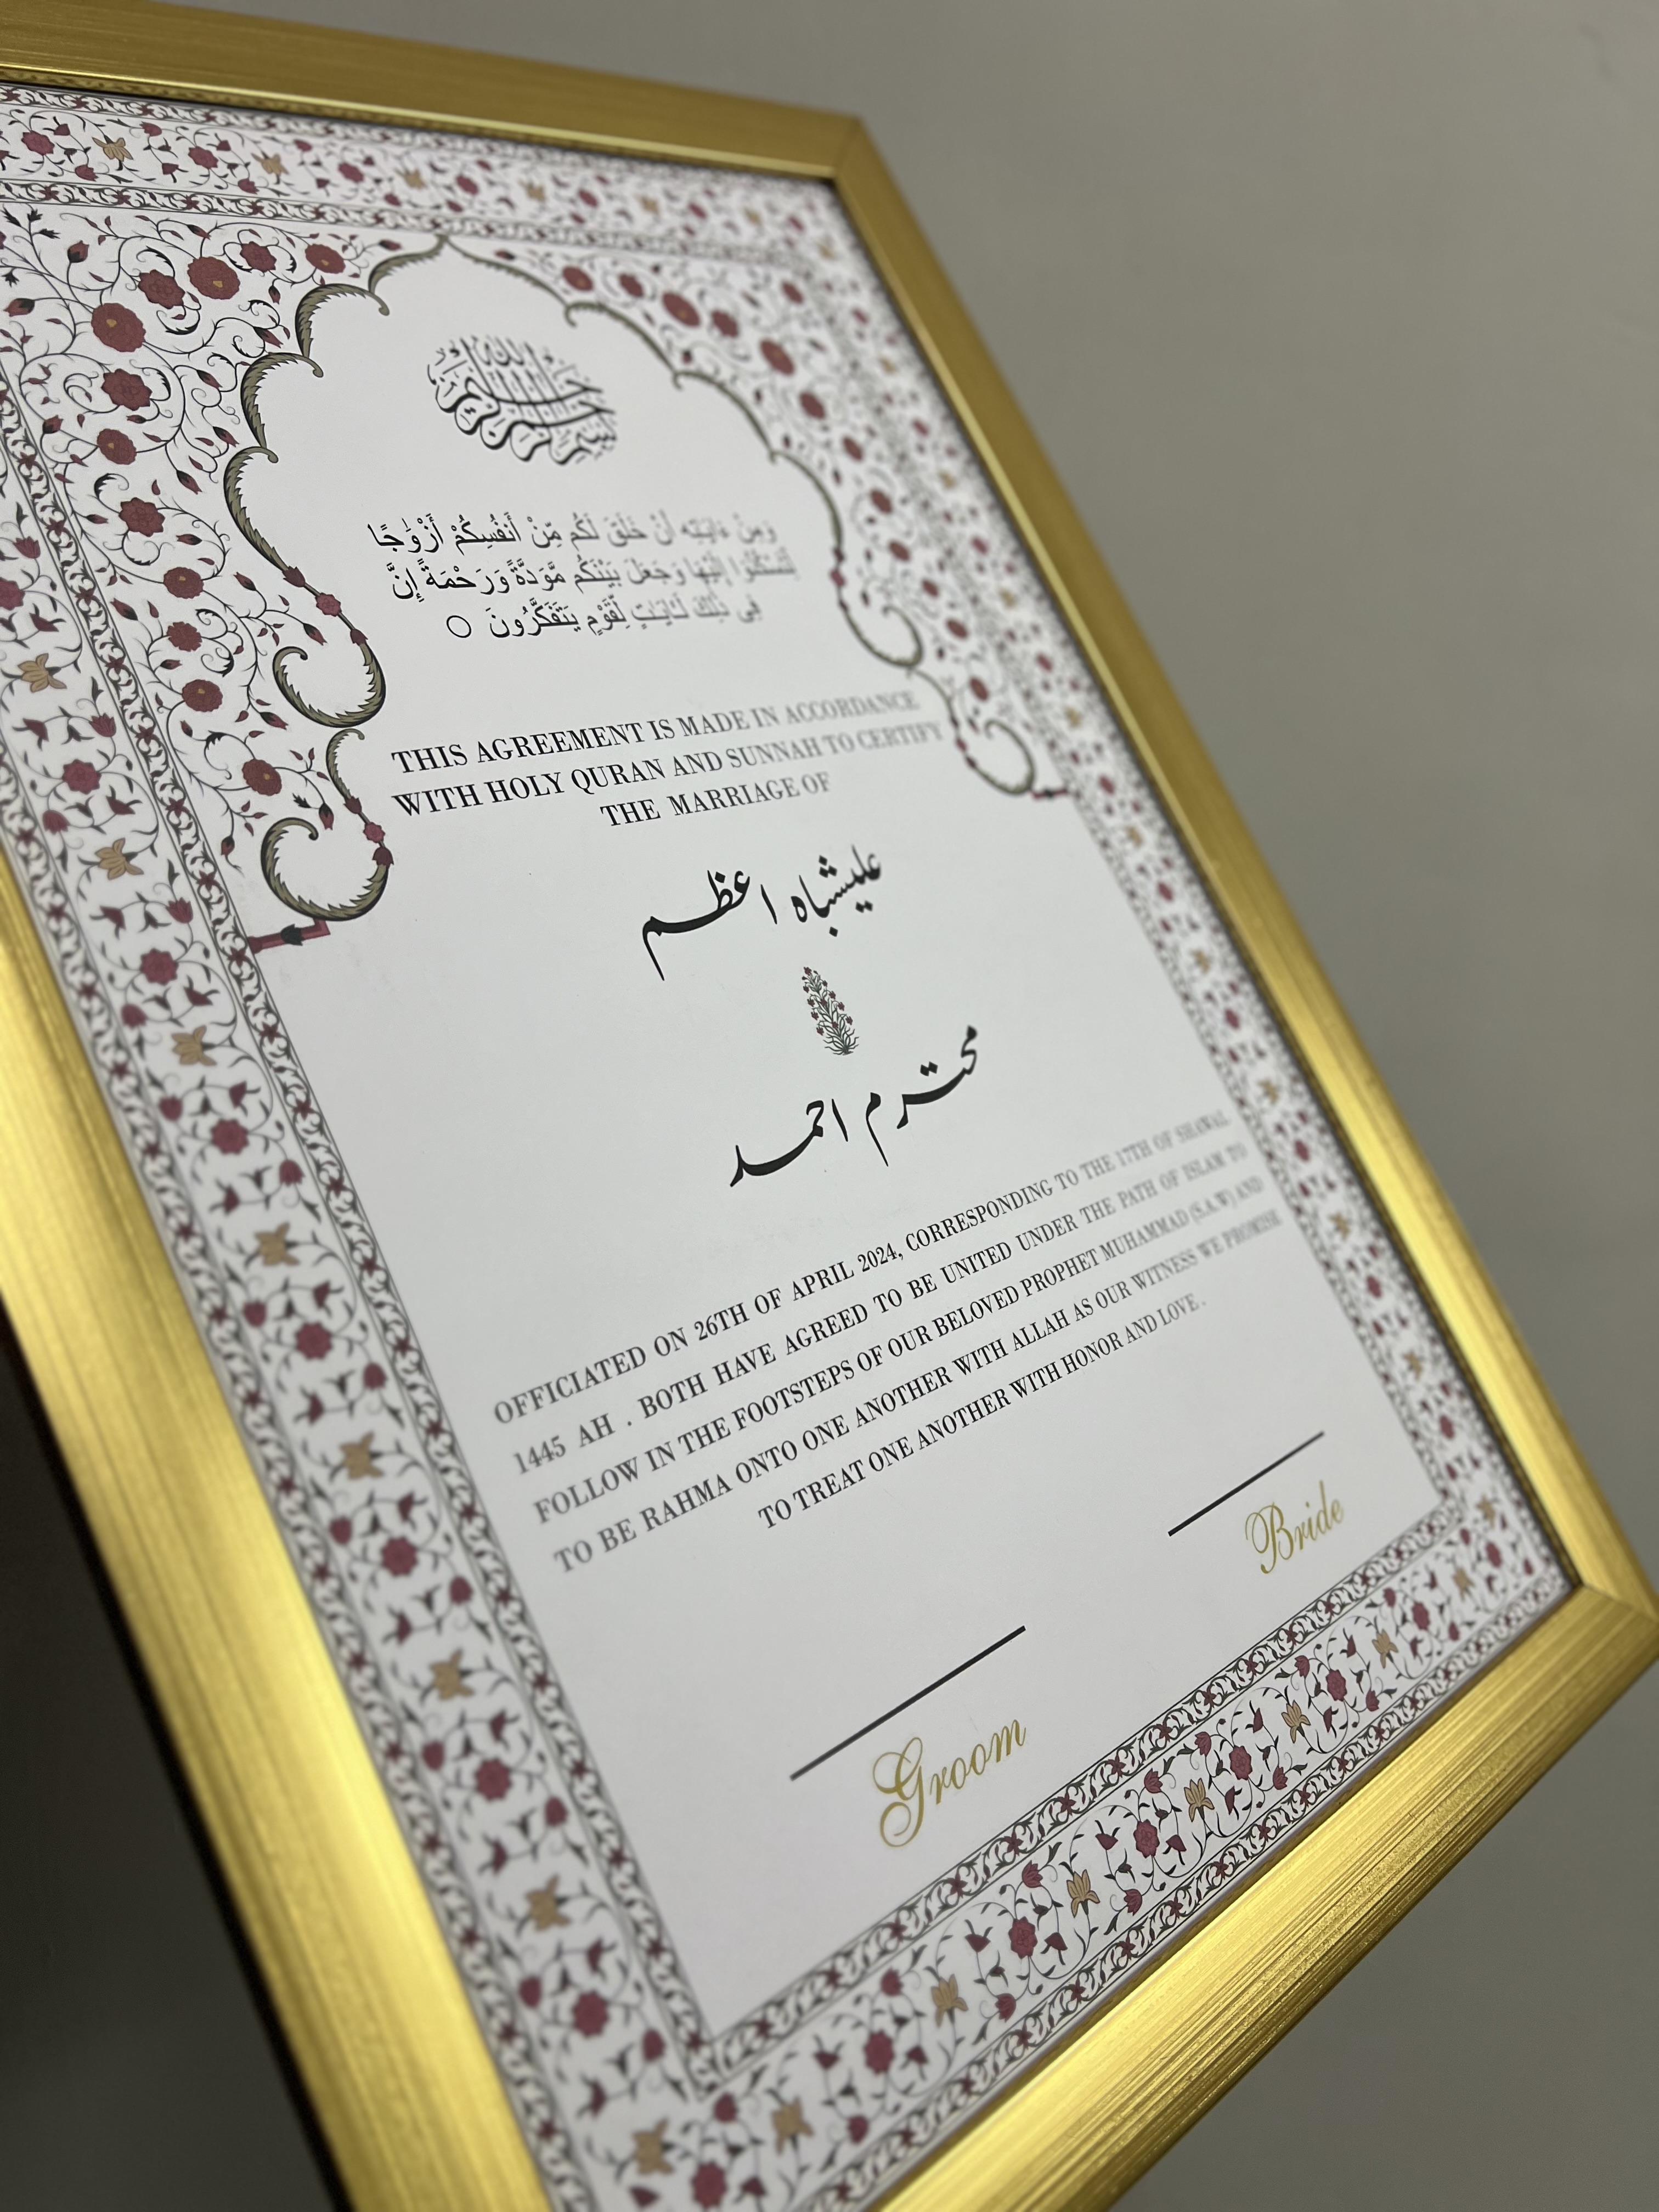 بسم الله الرحمن الرحيم
وَمِنْ ءَايَٰتِهِۦ أَنْ خَلَقَ لَكُم مِّنْ أَنفُسِكُمْ أَزْوَٰجًا
لِّتَسْكُنُوٓا۟ إِلَيْهَا وَجَعَلَ بَيْنَكُم مَّوَدَّةً وَرَحْمَةً إِنَّ
فِى ذَٰلِكَ لَءَايَٰتٍ لِّقَوْمٍ يَتَفَكَّرُونَ
THIS AGREEMENT IS MADE IN ACCORDANCE
WITH HOLY QURAN AND SUNNAH TO CERTIFY
THE MARRIAGE OF
علیشباہ اعظم
محترم احمد
OFFICIATED ON 26TH OF APRIL 2024, CORRESPONDING TO THE 17TH OF SHAWAL
1445 AH . BOTH HAVE AGREED TO BE UNITED UNDER THE PATH OF ISLAM TO
FOLLOW IN THE FOOTSTEPS OF OUR BELOVED PROPHET MUHAMMAD (S.A.W) AND
TO BE RAHMA ONTO ONE ANOTHER WITH ALLAH AS OUR WITNESS WE PROMISE
TO TREAT ONE ANOTHER WITH HONOR AND LOVE.
Groom
Bride